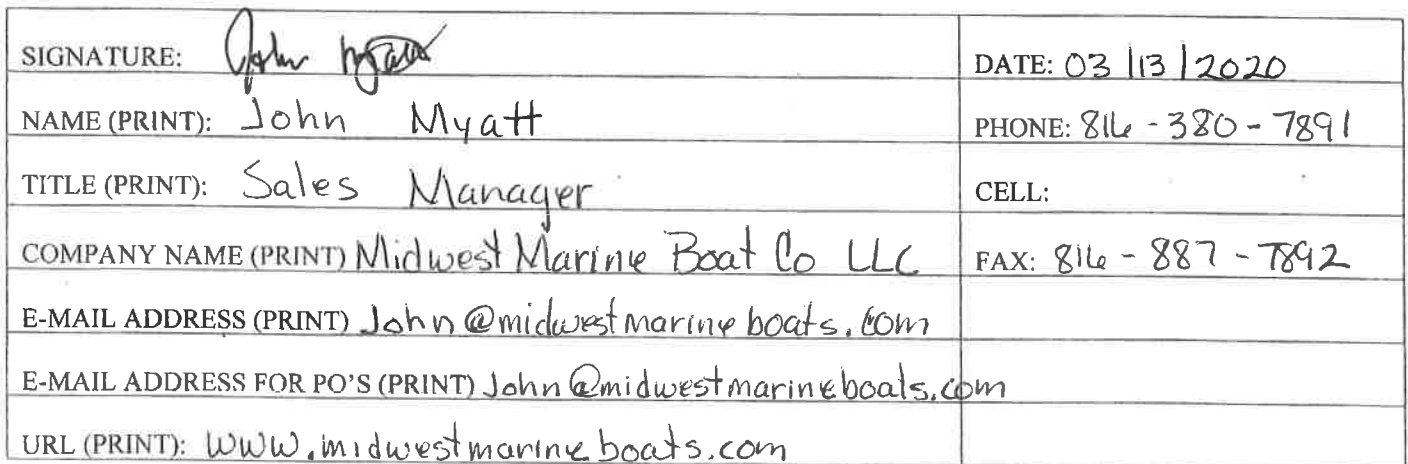 SIGNATURE: John Myatt DATE: 03/13/2020
NAME (PRINT): John Myatt PHONE: 816-380-7891
TITLE (PRINT): Sales Manager CELL:
COMPANY NAME (PRINT) Midwest Marine Boat Co LLC FAX: 816-887-7892
E-MAIL ADDRESS (PRINT) John@midwestmarineboats.com
E-MAIL ADDRESS FOR PO'S (PRINT) John@midwestmarineboats.com
URL (PRINT): WWW.midwestmarineboats.com